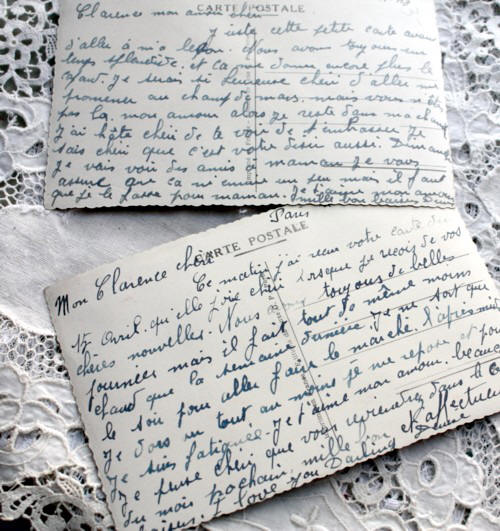 CARTE POSTALE
Clarence mon amour cheri
Juste cette petite carte avant
d'aller à ma leçon. Nous avons toujours un
temps splendide. et ca me donne encore plus le
cafard. Je serais si heureuse cheri d'aller me
promener au champ de mars. mais vous n'êtes
pas la. mon amour alors je reste dans ma cham
J'ai hâte cheri de te voir de t'embrasser. Je
sais cheri que c'est votre desir aussi. Dimanc
Je vais voir des amis maman je vous
assure que ca m'ennuie un peu mais il faut
que je le fasse pour maman. Je t'aime mon amour
mille bon baisers Denise
Paris
CARTE POSTALE
Mon Clarence cheri
Ce matin j'ai recue votre carte du
15 Avril. qu'elle joie cheri lorsque je recois de vos
chères nouvelles. Nous toujours de belles
journées mais il fait tout de même moins
chaud que la semaine dernière. Je ne sort que
le soir pour aller faire le marché. l'apres mi
Je dors ou tout au moins je me repose et
Je suis fatiguée. Je t'aime mon amour. beauco
Je pense cheri que vous reprendrez dans le
du mois prochain. mille bon affectueu
baisers. I love you Darling
Denise